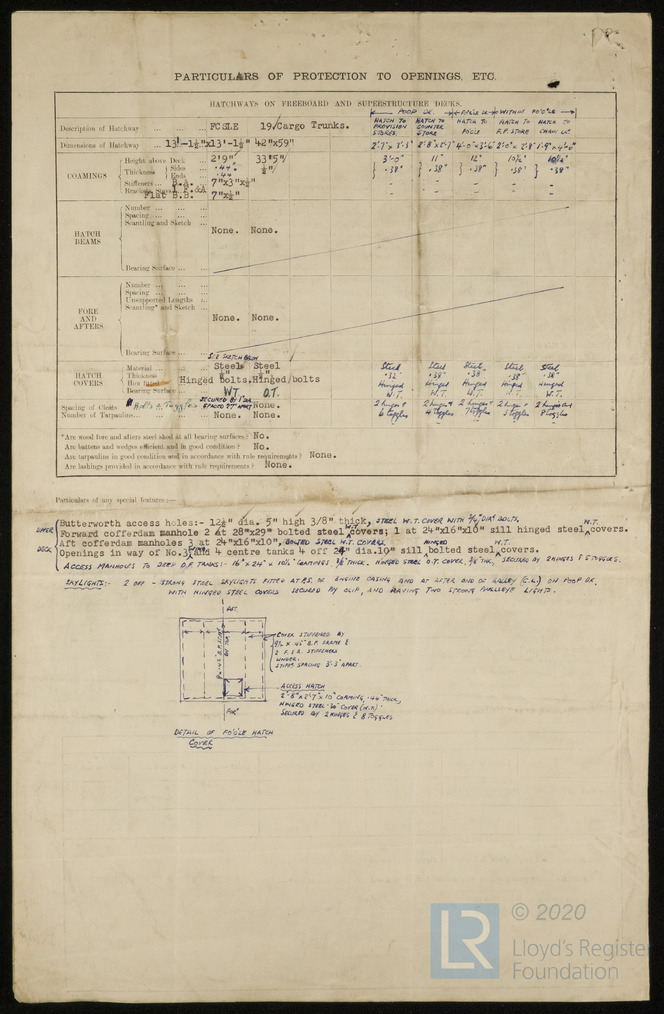 PARTICULARS OF PROTECTION TO OPENINGS, ETC.
HATCHWAYS ON FREEBOARD AND SUPERSTRUCTURE DECKS.
POOP DK. FO'C'LE DK WITHIN FO'C'LE
Description of Hatchway ... ... ... FCSLE 19/Cargo Trunks. HATCH TO PROVISION STORES. HATCH TO COUNTER STORE HATCH TO FO'CLE HATCH TO F.P. STORE HATCH TO CHAIN LR.
Dimensions of Hatchway ... 13'-1½"x13'-1½" 42"x59"
COAMINGS
Height above Deck ... 2'9" 33'5" 3'-0" 11" 12" 10½" 10½"
Thickness Sides ... .44" ½" .38" .38" .38" .38" .38"
Ends ... .44
Stiffeners ... B.A. 7"x3"x½" - - - - -
Brackets, Stays
Flat B.B. 7"x½" - - - - -
HATCH BEAMS
Number ... ... ...
Spacing ... ... ...
Scantling and Sketch ...
None. None.
Bearing Surface ... ...
FORE AND AFTERS
Number ... ... ...
Spacing ... ... ...
Unsupported Lengths ...
Scantling* and Sketch ...
None. None.
Bearing Surface ... ...
SEE SKETCH BELOW
HATCH COVERS
Material ... ... ... Steel Steel Steel Steel Steel Steel Steel
Thickness ... .32" .38" .38" .38" .38"
How fitted Hinged bolts. Hinged/bolts Hinged Hinged Hinged Hinged Hinged
Bearing Surface WT O.T. W.T. W.T. W.T. W.T. W.T.
Spacing of Cleats Bolts & Toggles SECURED BY 1" DIA SPACED 2'7" APART None. 2 hinges & 6 toggles 2 hinges & 4 toggles 2 hinges & 7 toggles 2 hinges & 5 toggles 2 hinges and 8 toggles
Number of Tarpaulins ... ... None. None.
*Are wood fore and afters steel shod at all bearing surfaces? No.
Are battens and wedges efficient and in good condition? No.
Are tarpaulins in good condition and in accordance with rule requirements? None.
Are lashings provided in accordance with rule requirements? None.
Particulars of any special features :—
Butterworth access holes:- 12½" dia. 5" high 3/8" thick, STEEL W.T. COVER WITH 3/4" DIA. BOLTS.
UPPER DECK
Forward cofferdam manhole 2 at 28"x29" bolted steel W.T. covers; 1 at 24"x16"x10" sill hinged steel W.T. covers.
Aft cofferdam manholes 3 at 24"x16"x10", BOLTED STEEL W.T. COVERS.
Openings in way of No.3 and 4 centre tanks 4 off 24" dia.10" sill HINGED bolted steel W.T. covers.
ACCESS MANHOLES TO DEEP O.F. TANKS:- 16"x24"x10½" COAMINGS 3/8" THICK. HINGED STEEL O.T. COVER, 3/8" THK, SECURED BY 2 HINGES & 5 TOGGLES.
SKYLIGHTS:- 2 OFF - STRONG STEEL SKYLIGHTS FITTED AT F.S. OF ENGINE CASING AND AT AFTER END OF GALLEY (C.L.) ON POOP DK.
WITH HINGED STEEL COVERS SECURED BY CLIP, AND HAVING TWO STRONG BULLEYE LIGHTS.
AFT.
COVER STIFFENED BY
9½ x .45" B.P. FRAME &
2 F. & A. STIFFENERS
UNDER.
STIFFS SPACING 3'-3" APART.
ACCESS HATCH
2'-8"x2'-7"x10" COAMING .44" THICK,
HINGED STEEL .30" COVER (W.T.)
SECURED BY 2 HINGES & 8 TOGGLES
FOR'D
DETAIL OF FO'C'LE HATCH
COVER
© 2020
LR
Lloyd's Register
Foundation